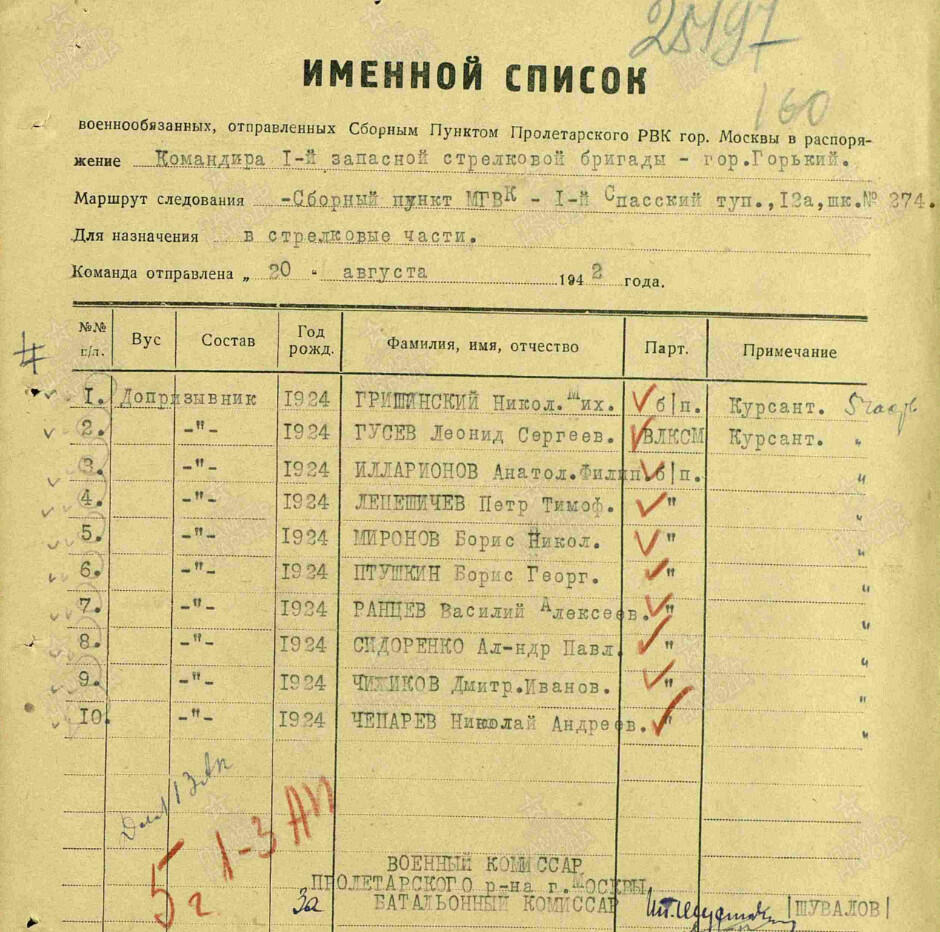 25197
160
ИМЕННОЙ СПИСОК
военнообязанных, отправленных Сборным Пунктом Пролетарского РВК гор. Москвы в распоря-
жение Командира I-й запасной стрелковой бригады - гор.Горький.
Маршрут следования -Сборный пункт МГВК - I-й Спасский туп.,I2а,шк.№ 274.
Для назначения в стрелковые части.
Команда отправлена „ 20 " августа 1942 года.
№№ п/п. Вус Состав Год рожд. Фамилия, имя, отчество Парт. Примечание
I. Допризывник I924 ГРИШИНСКИЙ Никол.Мих. б/п. Курсант.
2. -"- I924 ГУСЕВ Леонид Сергеев. ВЛКСМ Курсант. "
3. -"- I924 ИЛЛАРИОНОВ Анатол.Филип. б/п. "
4. -"- I924 ЛЕПЕШИЧЕВ Петр Тимоф. " "
5. -"- I924 МИРОНОВ Борис Никол. " "
6. -"- I924 ПТУШКИН Борис Георг. " "
7. -"- I924 РАНЦЕВ Василий Алексеев. " "
8. -"- I924 СИДОРЕНКО Ал-ндр Павл. " "
9. -"- I924 ЧИЖИКОВ Дмитр.Иванов. " "
I0. -"- I924 ЧЕПАРЕВ Николай Андреев. " "
1-3 АП
5г
ВОЕННЫЙ КОМИССАР
ПРОЛЕТАРСКОГО р-на г.МОСКВЫ,
За БАТАЛЬОННЫЙ КОМИССАР /ШУВАЛОВ/